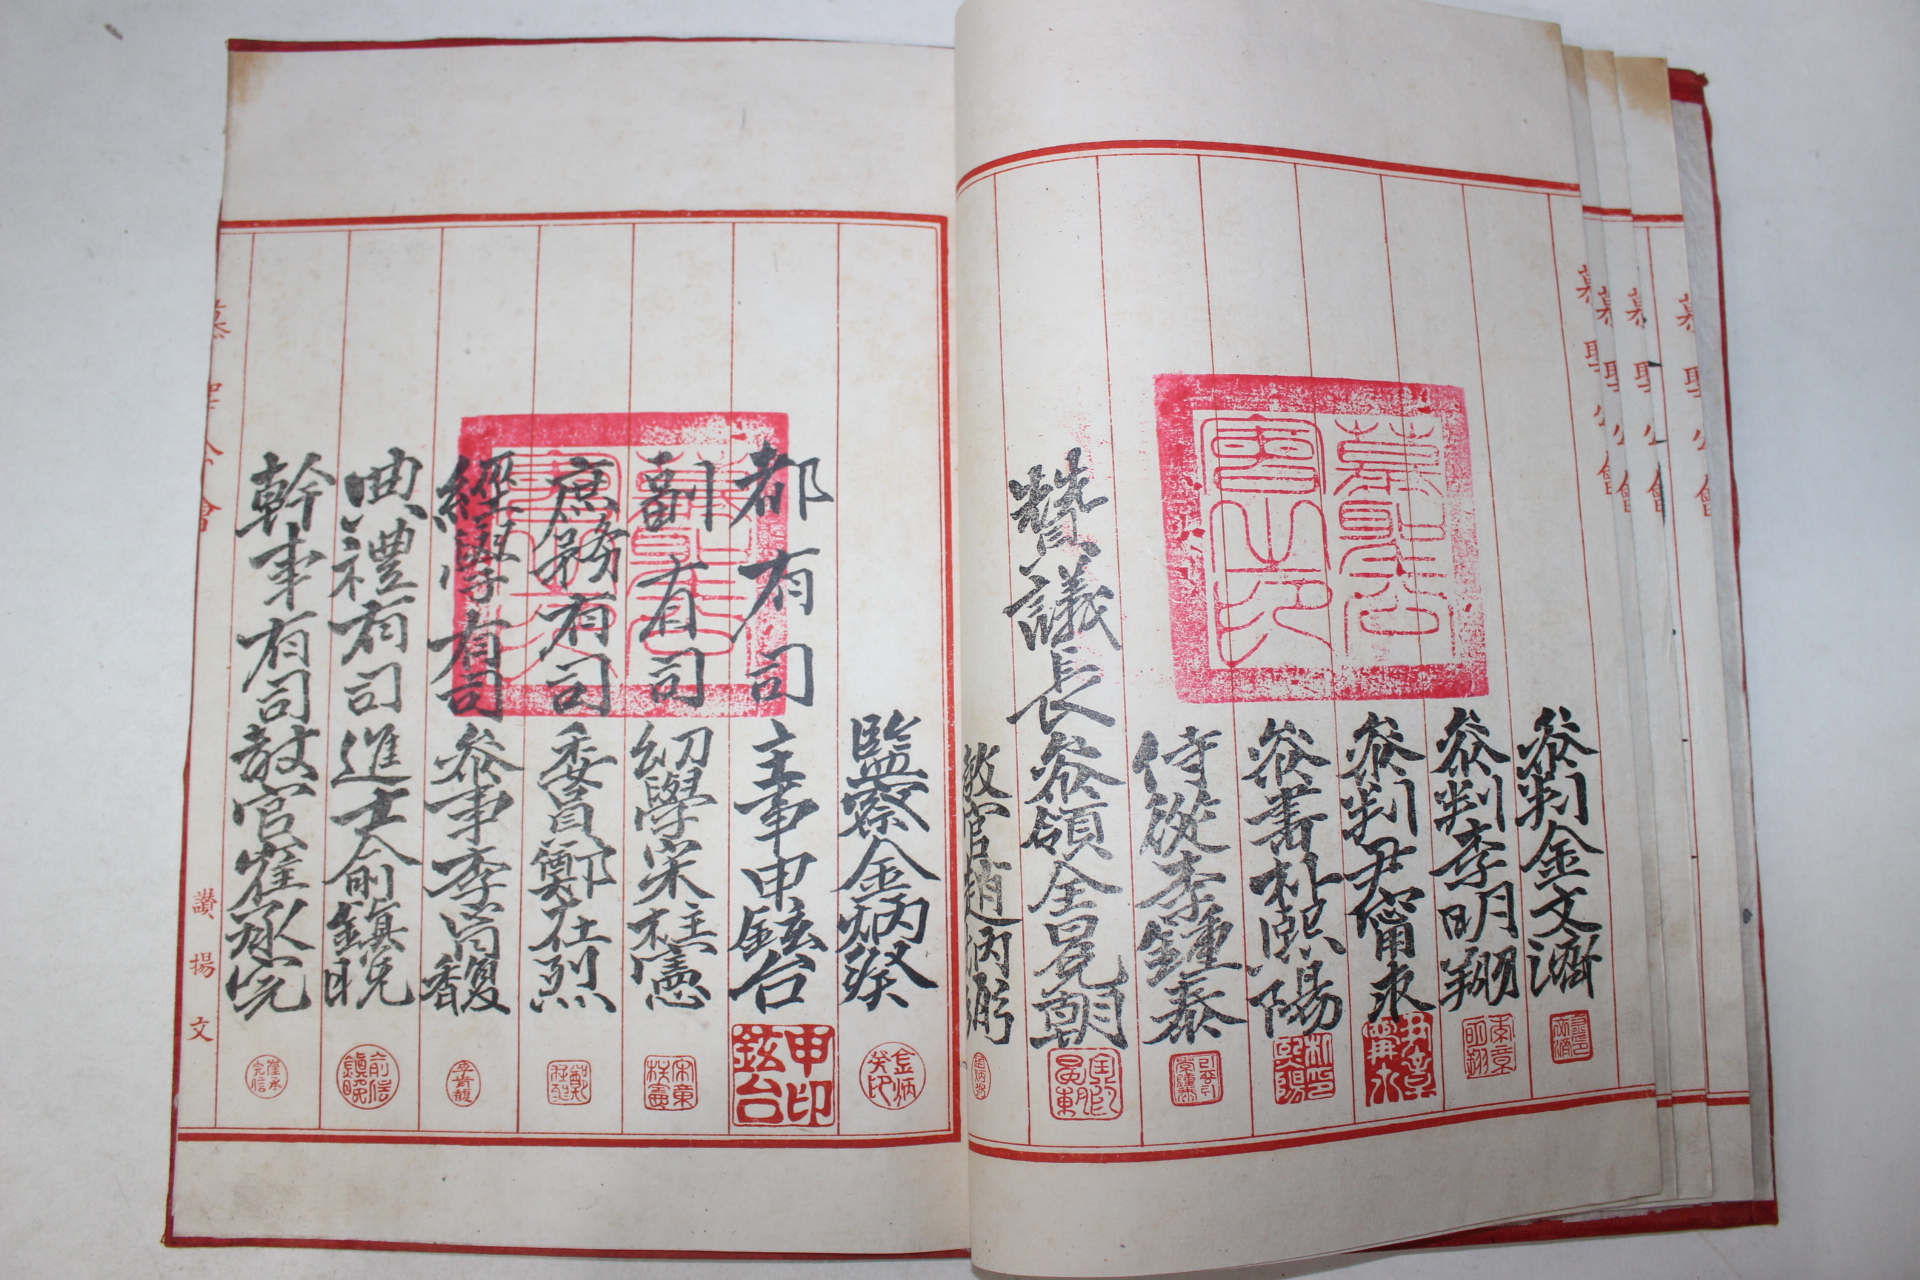 參判金文濟
參判李明翔
參判尹甯求
參書朴熙陽
侍從李鍾泰
贊議長 參領全晃朝
教官趙炳彤
監察金炳癸
都有司 主事申鉉台
副有司 幼學宋柱憲
庶務有司 委員鄭在烈
經學有司 參事李肯馥
典禮有司 進士俞鎭晩
幹事有司 教官崔永完
慕聖公會
讚揚文
慕聖公會之印
申鉉台印